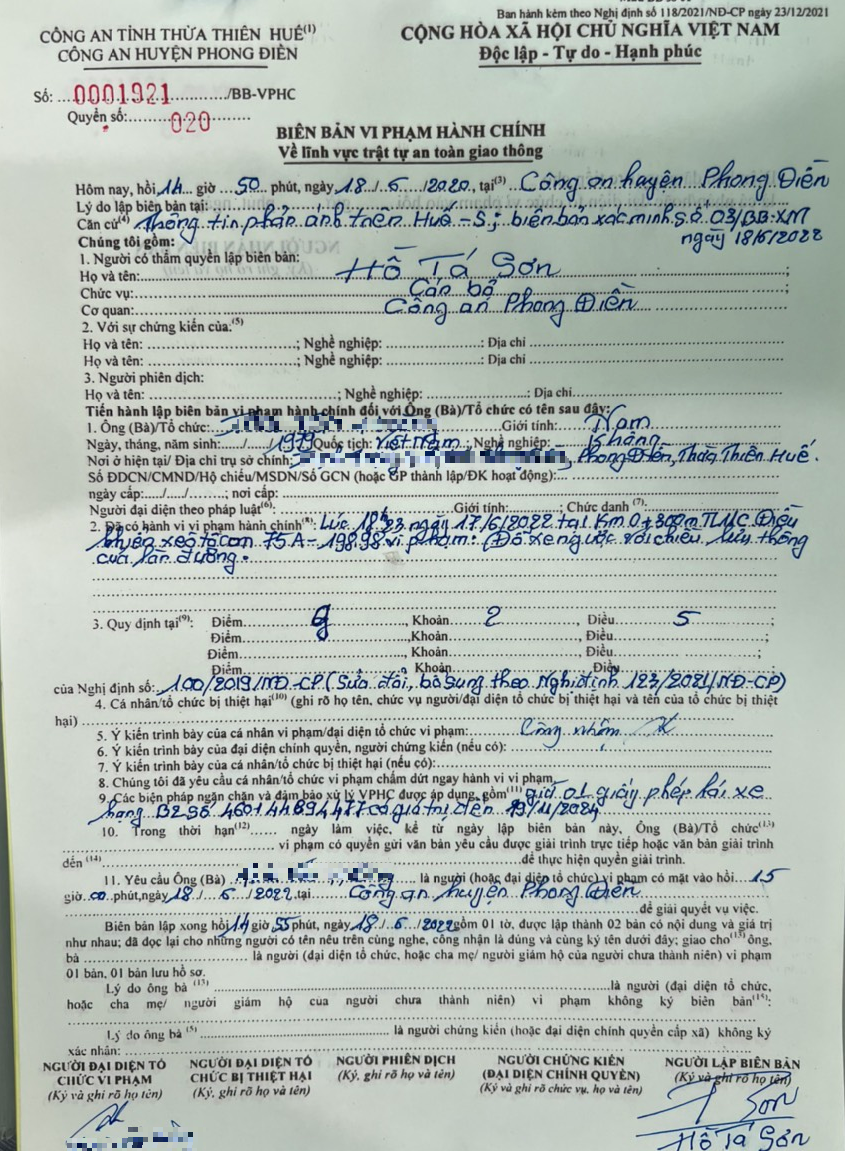 Ban hành kèm theo Nghị định số 118/2021/NĐ-CP ngày 23/12/2021
CÔNG AN TỈNH THỪA THIÊN HUẾ(1)
CÔNG AN HUYỆN PHONG ĐIỀN
CỘNG HÒA XÃ HỘI CHỦ NGHĨA VIỆT NAM
Độc lập - Tự do - Hạnh phúc
Số: ...0001921............/BB-VPHC
Quyển số:......020..........
BIÊN BẢN VI PHẠM HÀNH CHÍNH
Về lĩnh vực trật tự an toàn giao thông
Hôm nay, hồi 14 giờ 50 phút, ngày 18/6/2020, tại(3) Công an huyện Phong Điền
Lý do lập biên bản tại:
Căn cứ(4) Thông tin phản ánh trên Huế-S; biên bản xác minh số 03/BB-XM
ngày 18/6/2022
Chúng tôi gồm:
1. Người có thẩm quyền lập biên bản:
Họ và tên: Hồ Tá Sơn ;
Chức vụ: Cán bộ ;
Cơ quan: Công an Phong Điền
2. Với sự chứng kiến của:(5)
Họ và tên: ......; Nghề nghiệp: ......: Địa chỉ ......
Họ và tên: ......; Nghề nghiệp: ......: Địa chỉ ......
3. Người phiên dịch:
Họ và tên: ......; Nghề nghiệp: ......: Địa chỉ......
Tiến hành lập biên bản vi phạm hành chính đối với Ông (Bà)/Tổ chức có tên sau đây:
1. Ông (Bà)/Tổ chức: Giới tính: Nam
Ngày, tháng, năm sinh:....../....../1979 Quốc tịch: Việt Nam; Nghề nghiệp: Không
Nơi ở hiện tại/ Địa chỉ trụ sở chính: , Phong Điền, Thừa Thiên Huế.
Số ĐDCN/CMND/Hộ chiếu/MSDN/Số GCN (hoặc GP thành lập/ĐK hoạt động):...
ngày cấp:...../...../......; nơi cấp:
Người đại diện theo pháp luật(6): Giới tính: Chức danh (7):
2. Đã có hành vi vi phạm hành chính(8): Lúc 18h23 ngày 17/6/2022 tại Km 0+300m Điều
khiển xe ô tô con 75A-198.98 vi phạm: (Đỗ xe ngược với chiều lưu thông
của làn đường.
3. Quy định tại(9): Điểm g, Khoản 2, Điều 5 ;
Điểm......,Khoản......, Điều......;
Điểm......,Khoản......, Điều......;
Điểm......, Khoản......, Điều
của Nghị định số: 100/2019/NĐ-CP (Sửa đổi, bổ sung theo Nghị định 123/2021/NĐ-CP)
4. Cá nhân/tổ chức bị thiệt hại(10) (ghi rõ họ tên, chức vụ người/đại diện tổ chức bị thiệt hại và tên của tổ chức bị thiệt
hại)
5. Ý kiến trình bày của cá nhân vi phạm/đại diện tổ chức vi phạm:
6. Ý kiến trình bày của đại diện chính quyền, người chứng kiến (nếu có):
7. Ý kiến trình bày của cá nhân/tổ chức bị thiệt hại (nếu có):
8. Chúng tôi đã yêu cầu cá nhân/tổ chức vi phạm chấm dứt ngay hành vi vi phạm.
9. Các biện pháp ngăn chặn và đảm bảo xử lý VPHC được áp dụng, gồm(11) giữ 01 giấy phép lái xe
hạng B2 Số có giá trị đến 19/11/2024
10. Trong thời hạn(12)..... ngày làm việc, kể từ ngày lập biên bản này, Ông (Bà)/Tổ chức(13)
...... vi phạm có quyền gửi văn bản yêu cầu được giải trình trực tiếp hoặc văn bản giải trình
đến (14)......để thực hiện quyền giải trình.
11. Yêu cầu Ông (Bà) là người (hoặc đại diện tổ chức) vi phạm có mặt vào hồi 15
giờ 00 phút,ngày 18/6/2022.tại Công an huyện Phong Điền
......để giải quyết vụ việc.
Biên bản lập xong hồi 14 giờ 55 phút, ngày 18/6/2022 gồm 01 tờ, được lập thành 02 bản có nội dung và giá trị
như nhau; đã đọc lại cho những người có tên nêu trên cùng nghe, công nhận là đúng và cùng ký tên dưới đây; giao cho ông,
bà ...... là người (đại diện tổ chức, hoặc cha mẹ/ người giám hộ của người chưa thành niên) vi phạm
01 bản, 01 bản lưu hồ sơ.
Lý do ông bà (15) ......là người (đại diện tổ chức,
hoặc cha mẹ/ người giám hộ của người chưa thành niên) vi phạm không ký biên bản:
Lý do ông bà (5) ...... là người chứng kiến (hoặc đại diện chính quyền cấp xã) không ký
xác nhận:
NGƯỜI ĐẠI DIỆN TỔ CHỨC VI PHẠM
(Ký và ghi rõ họ tên)
NGƯỜI ĐẠI DIỆN TỔ CHỨC BỊ THIỆT HẠI
(Ký, ghi rõ họ và tên)
NGƯỜI PHIÊN DỊCH
(Ký, ghi rõ họ và tên)
NGƯỜI CHỨNG KIẾN
(ĐẠI DIỆN CHÍNH QUYỀN)
(Ký và ghi rõ chức vụ, họ và tên)
NGƯỜI LẬP BIÊN BẢN
(Ký và ghi rõ họ tên)
Sơn
Hồ Tá Sơn